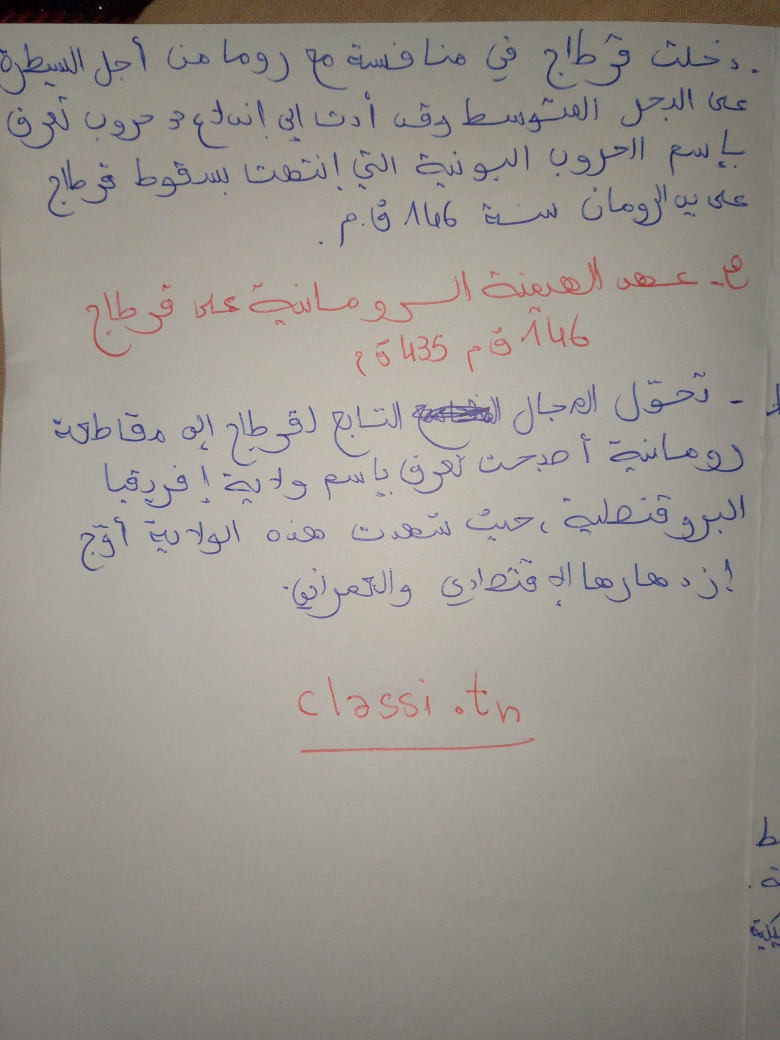 . دخلت قرطاج في منافسة مع روما من أجل السيطرة
على البحر المتوسط وقد أدت إلى إندلاع 3 حروب تعرف
بإسم الحروب البونية التي إنتهت بسقوط قرطاج
على يد الرومان سنة 146 ق.م.
ج- عهد الهيمنة الرومانية على قرطاج
146 ق م 435 ق م
- تحوّل المجال التابع لقرطاج إلى مقاطعة
رومانية أصبحت تعرف بإسم ولاية إفريقيا
البروقنصلية، حيث شهدت هذه الولاية أوّج
إزدهارها الإقتصادي والعمراني.
classi.tn